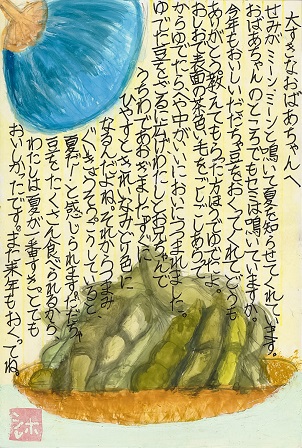 大すきなおばあちゃんへ
せみがミーン、ミーンと鳴いて夏を知らせてくれています。
おばあちゃんのところでもセミは鳴いていますか。
今年もおいしいだだちゃ豆をおくってくれてどうも
ありがとう。教えてもらった方法でゆでたよ。
おしおで表面の茶色い毛をごしごしあらって
からゆでたらへや中がいいにおいにつつまれました。
ゆでた豆をざるに広げわたしとお兄ちゃんで
うちわであおぎました。すぐに
ひやすとされいなみどりに
なるんだよね。それからつまみ
ぐいきょうそう。こうしていると、
夏だーと感じられます。だだちゃ
豆をたくさん食べられるから
わたしは夏が一番すき。とても
おいしかったです。また来年もおくってね。